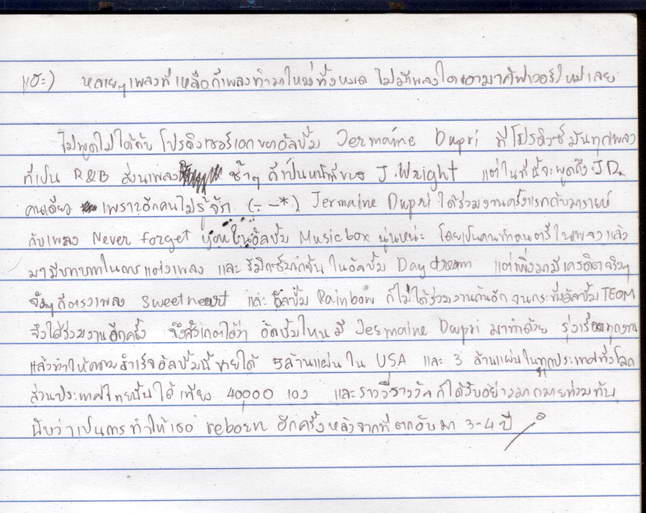 เยอะ) หลายๆเพลงที่เหลือก็เพลงทำมาใหม่ทั้งหมด ไม่มีเพลงใดเอามาคัฟเวอร์ใหม่เลย
ไม่พูดไม่ได้กับ โปรดิวเซอร์เอกของอัลบั้ม Jermaine Dupri ที่โปรดิวซ์มันทุกเพลง
ที่เป็น R&B ส่วนเพลง ช้าๆ ก็เป็นหน้าที่ของ J.Wright แต่ในที่นี้จะพูดถึง J.D.
คนเดียว เพราะอีกคนไม่รู้จัก (- -*) Jermaine Dupri ได้ร่วมงานครั้งแรกกับมารายห์
กับเพลง Never forget อัลบั้ม Musicbox นู่นหน่ะ โดยเป็นคนทำดนตรีในเพลง แล้ว
มามีบทบาทในการแต่งเพลง และ รีมิกซ์มากขึ้น ในอัลบั้ม Daydream แต่ที่มีเครดิตจริงๆ
จังๆก็ตรงเพลง Sweetheart และ อัลบั้ม Rainbow ก็ไม่ได้ร่วมงานกันอีก จนกระทั่งอัลบั้ม TEOM
จึงได้ร่วมงานอีกครั้ง จึงสังเกตได้ว่า อัลบั้มไหนมี Jermaine Dupri มาทำด้วย รุ่งเรืองทุกงาน
แล้วทำให้ความสำเร็จอัลบั้มนี้ ขายได้ 5ล้านแผ่นใน USA และ 3 ล้านแผ่นในทุกประเทศทั่วโลก
ส่วนประเทศไทยนั้นได้ เพียง 40000 เอง และรางวี่รางวัล ก็ได้รับอย่างมากมายท่วมทับ
นับว่าเป็นการทำให้เธอ reborn อีกครั้งหลังจากที่ตกอับมา 3-4 ปี